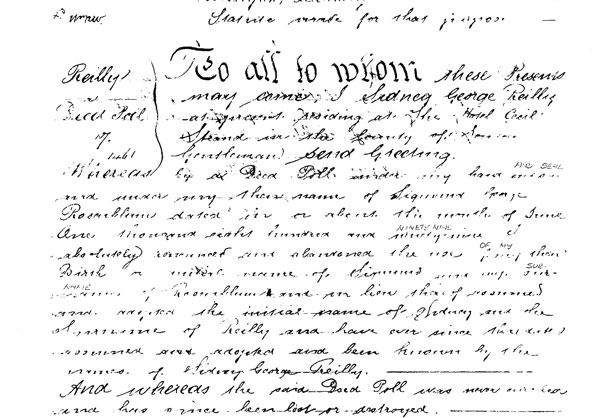 Statute made for that purpose —
Reilly
Deed Poll
To all to whom these Presents
may come, I Sidney George Reilly
at present residing at The Hotel Cecil
Strand in the County of
Gentleman Send Greeting.
Whereas by a Deed Poll under my hand AND SEAL
and under my then name of Sigmund George
Rosenblum dated in or about the month of June
One thousand eight hundred and NINETY NINE ninety nine I
absolutely renounced and abandoned the use OF MY my then
Birth or name of Sigmund and my SUR
NAME of Rosenblum and in lieu thereof assumed
and adopted the initial name of Sidney and the
surname of Reilly and have ever since
assumed and adopted and been known by the
names of Sidney George Reilly.
And whereas the said Deed Poll was never
and has since been lost or destroyed.